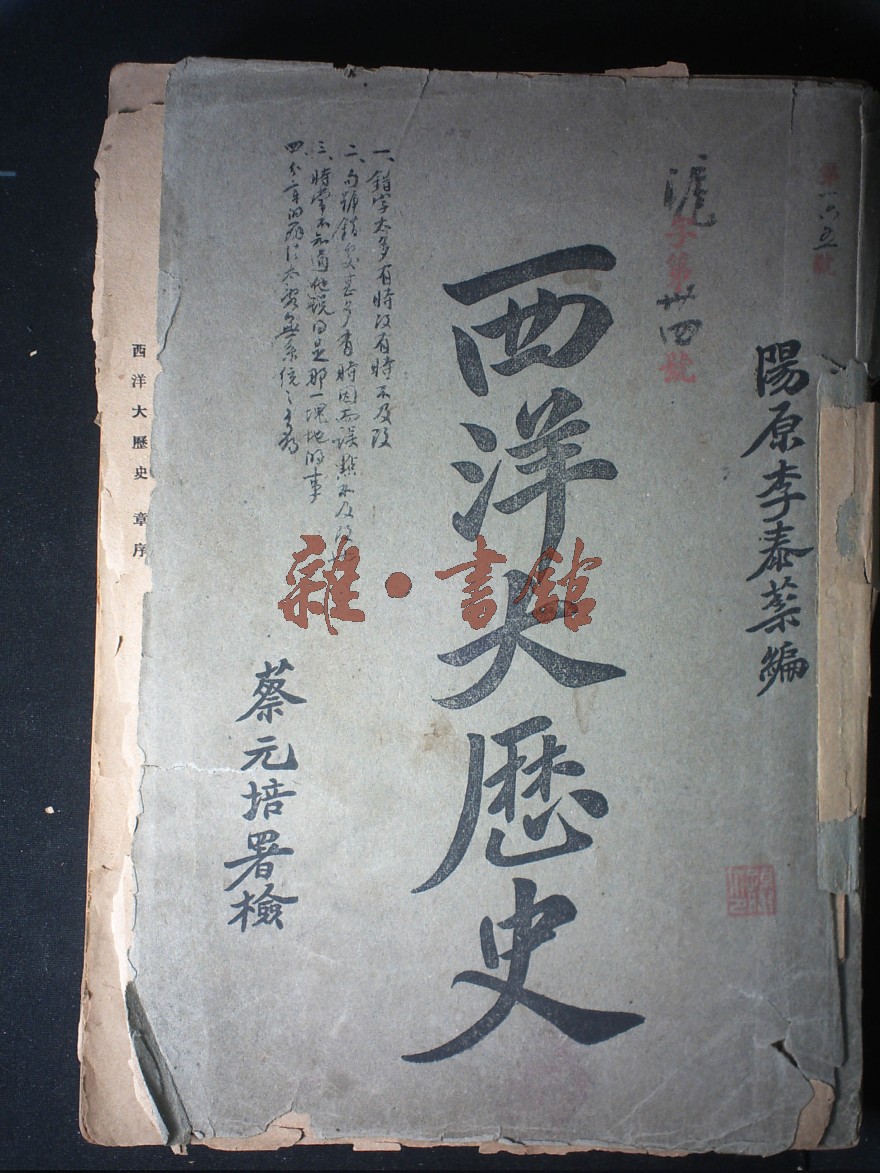 第一六五號
陽原李泰棻編
滬字第卅四號
西洋大歷史
一、錯字太多有時改有時不及改
二、句號錯處甚多有時因而誤點不及改
三、時常不知道他說的是那一塊地的事
四
蔡元培署檢
西洋大歷史 章序
雜·書館